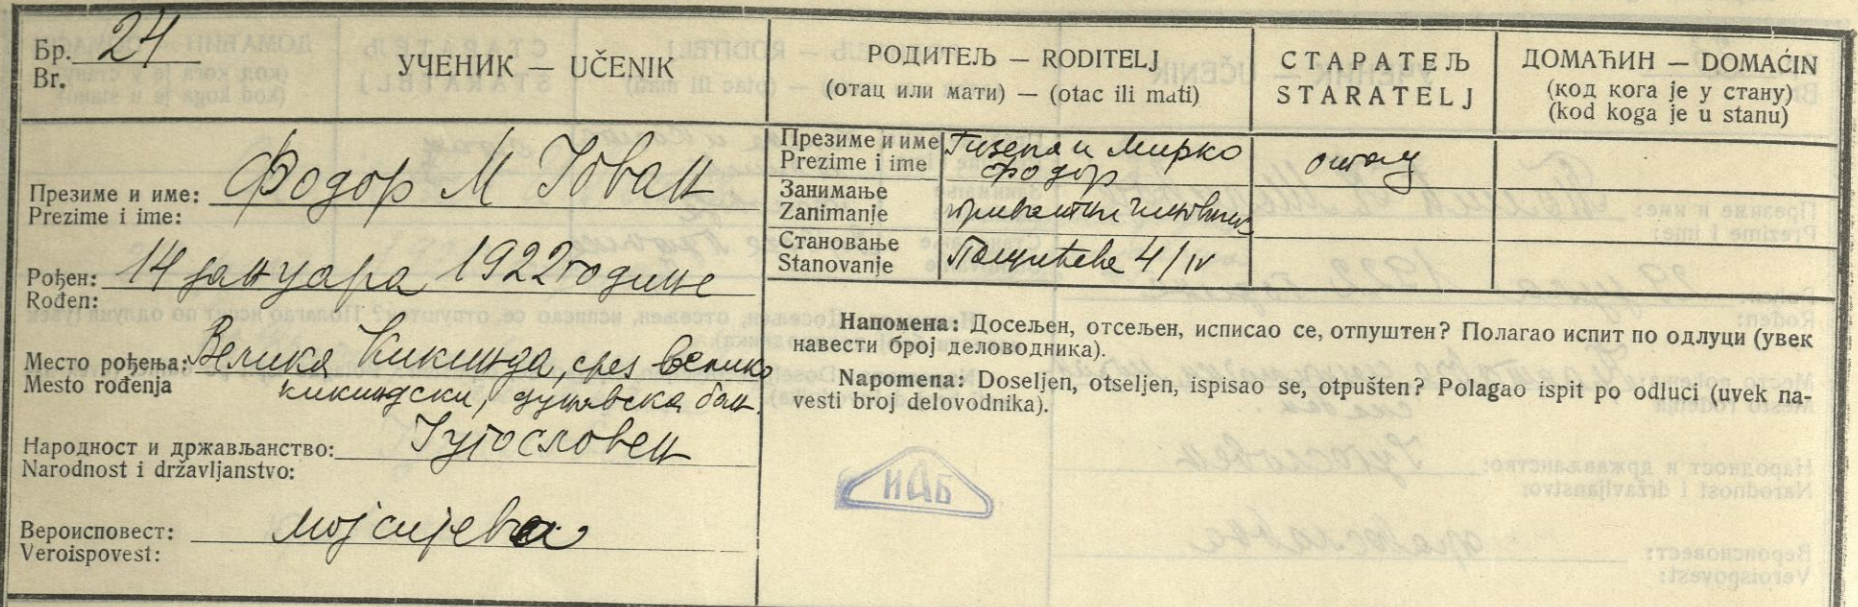 Бр. 24
Br.
УЧЕНИК — UČENIK
РОДИТЕЉ — RODITELJ
(отац или мати) — (otac ili mati)
СТАРАТЕЉ
STARATELJ
ДОМАЋИН — DOMAĆIN
(код кога је у стану)
(kod koga je u stanu)
Презиме и име: Фодор М Јован
Prezime i ime:
Рођен: 14 јануара 1922 године
Rođen:
Место рођења: Велика Кикинда, срез велико
Mesto rođenja кикиндски, дунавска бан.
Народност и држављанство: Југословен
Narodnost i državljanstvo:
Вероисповест: мојсијева
Veroispovest:
Презиме и име Гизела и Мирко
Prezime i ime Фодор
Занимање
Zanimanje приватни чиновник
Становање
Stanovanje 4/IV
отац
Напомена: Досељен, отсељен, исписао се, отпуштен? Полагао испит по одлуци (увек
навести број деловодника).
Napomena: Doseljen, otseljen, ispisao se, otpušten? Polagao ispit po odluci (uvek na-
vesti broj delovodnika).
ИАБ